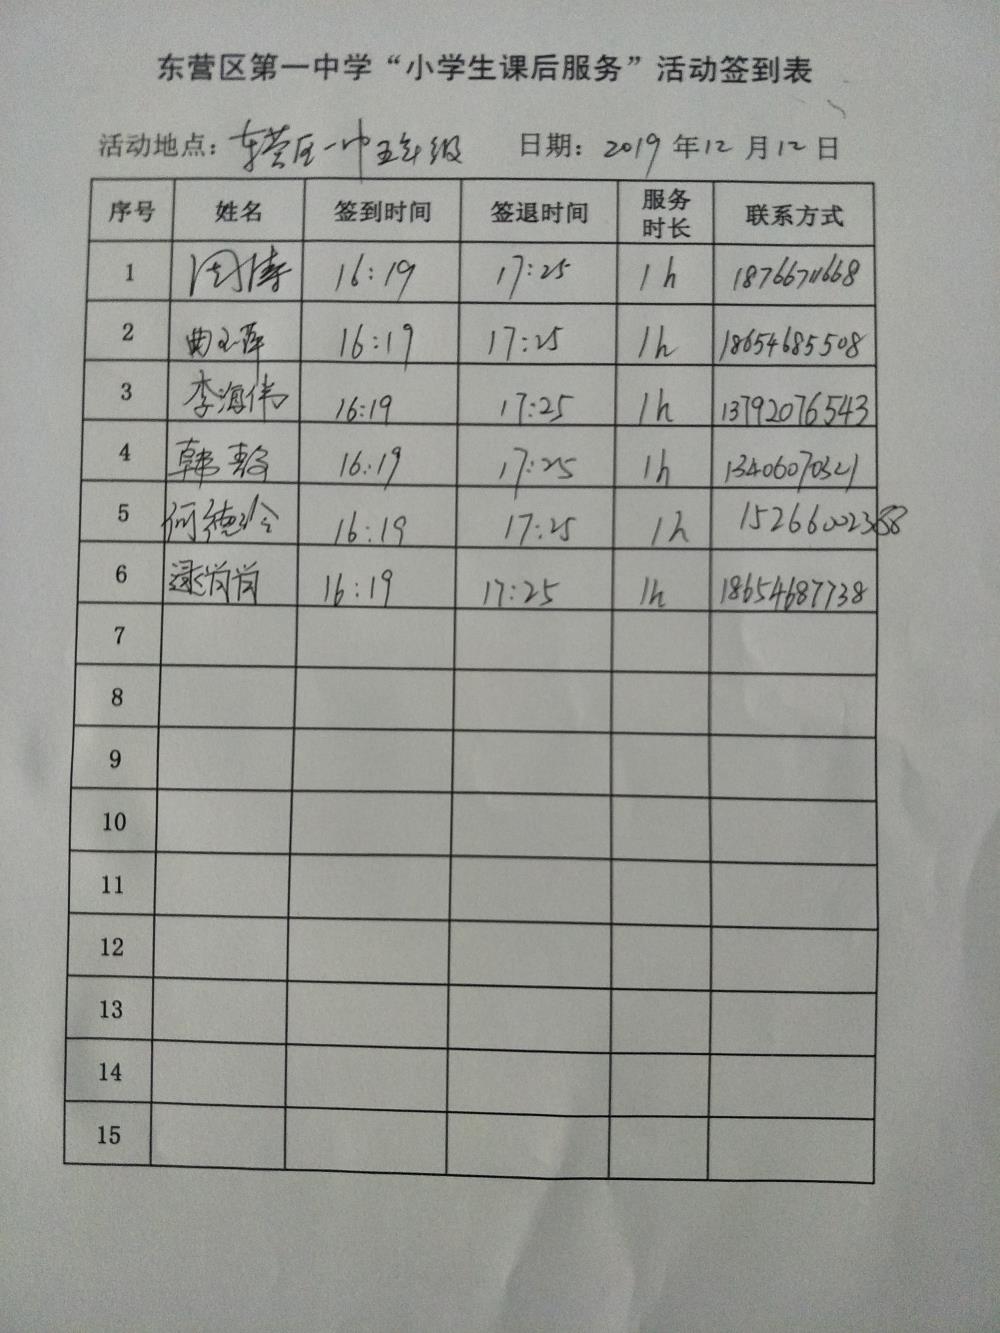 东营区第一中学“小学生课后服务”活动签到表
活动地点：东营区一中五年级 日期：2019年12月12日
序号 姓名 签到时间 签退时间 服务时长 联系方式
1 周涛 16:19 17:25 1h 18766711668
2 曲玉萍 16:19 17:25 1h 18654685508
3 李海伟 16:19 17:25 1h 13792076543
4 韩 16:19 17:25 1h 13406070321
5 何德玲 16:19 17:25 1h
6 逯尚尚 16:19 17:25 1h 18654687738
7
8
9
10
11
12
13
14
15